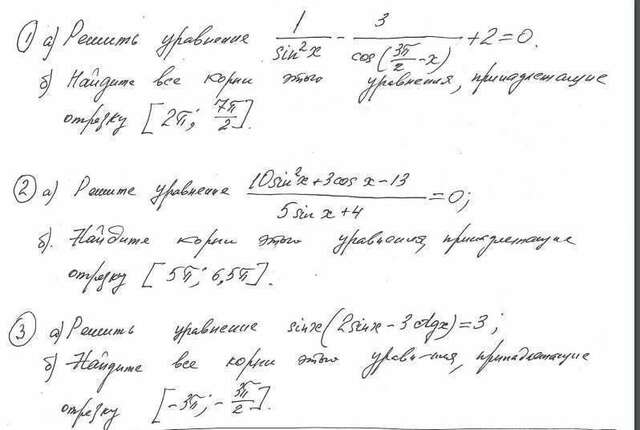 ① а) Решить уравнение 1/sin²x - 3/cos(3π/2 - x) + 2 = 0.
б) Найдите все корни этого уравнения, принадлежащие
отрезку [2π; 7π/2].
② а) Решите уравнение (10sin²x + 3cos x - 13)/(5sin x + 4) = 0;
б). Найдите корни этого уравнения, принадлежащие
отрезку [5π; 6,5π].
③ а) Решить уравнение sinx(2sinx - 3ctgx) = 3;
б) Найдите все корни этого уравн-ния, принадлежащие
отрезку [-3π; -3π/2].